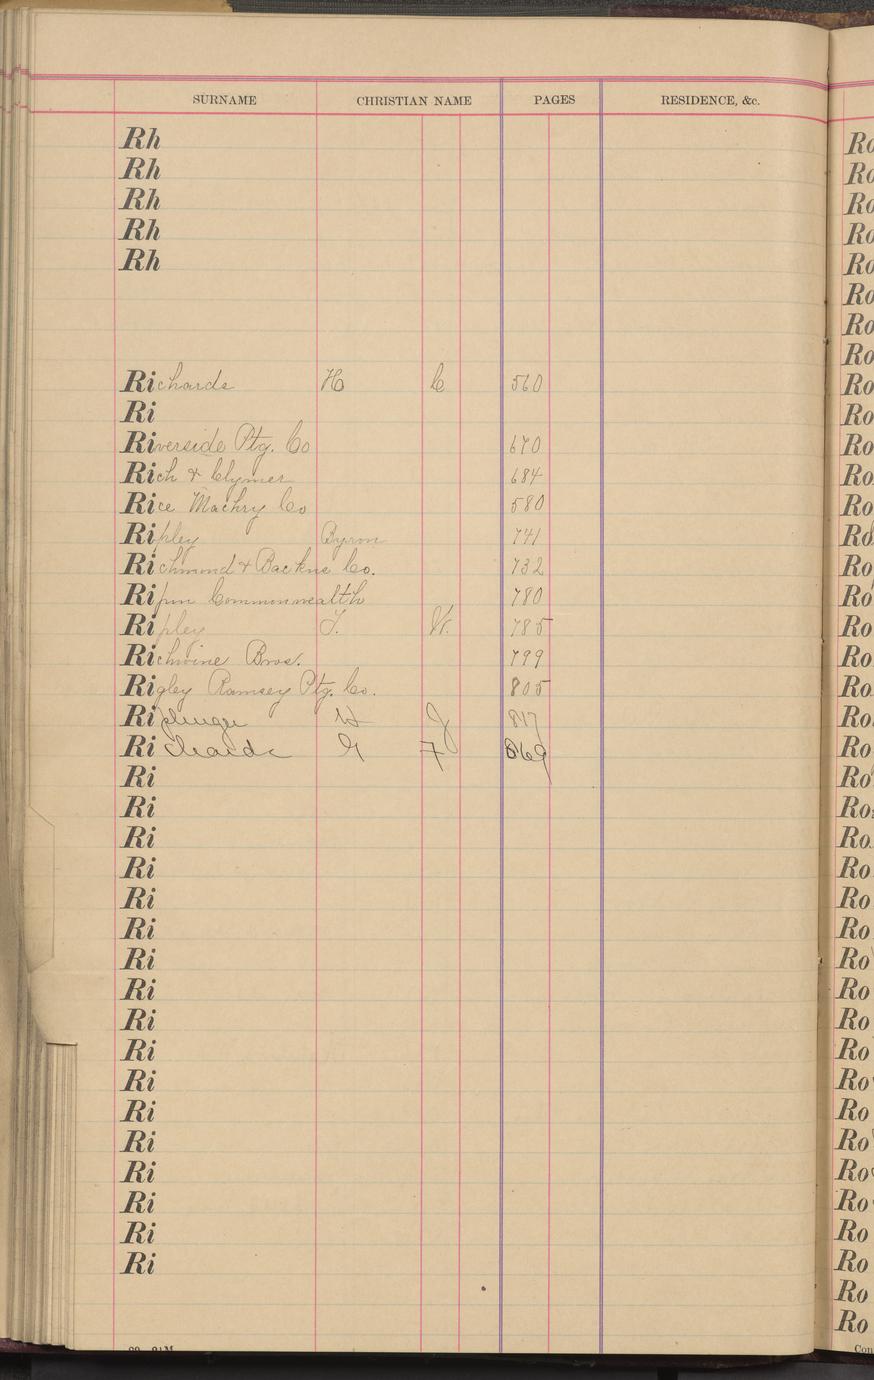 SURNAME CHRISTIAN NAME PAGES RESIDENCE, &c.
Rh
Rh
Rh
Rh
Rh
Richards H C 560
Ri
Riverside Ptg. Co 670
Rich & Clymer 684
Rice Machry Co 580
Ripley Byron 741
Richmond & Backus Co. 732
Ripon Commonwealth 780
Ripley T. W. 785
Richwine Bros. 799
Rigley Ramsey Ptg. Co. 805
Riplinger H J 817
Richards G F 869
Ri
Ri
Ri
Ri
Ri
Ri
Ri
Ri
Ri
Ri
Ri
Ri
Ri
Ri
Ri
Ri
Ri
Ro
Ro
Ro
Ro
Ro
Ro
Ro
Ro
Ro
Ro
Ro
Ro
Ro
Ro
Ro
Ro
Ro
Ro
Ro
Ro
Ro
Ro
Ro
Ro
Ro
Ro
Ro
Ro
Ro
Ro
Ro
Ro
Ro
Ro
Ro
Ro
Ro
Ro
Ro
Ro